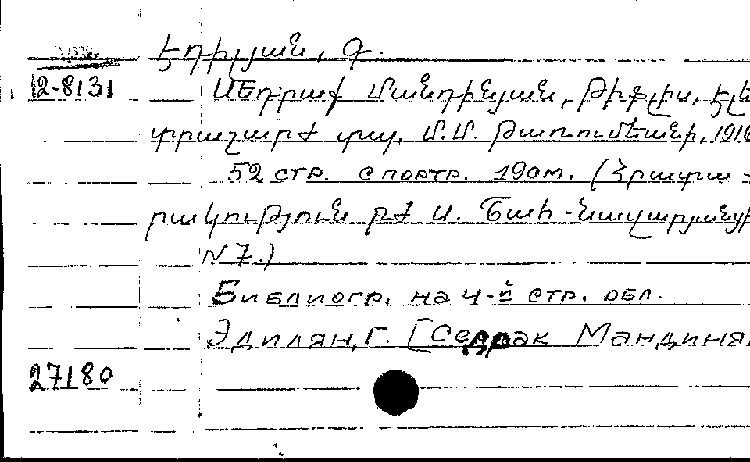 Էդիլյան, Գ.
12-8131
Սեդրաք Մանդինյան, Թիֆլիս, էլե
տրաշարժ տպ. Մ.Մ. Թառումեանի, 1916
52 стр. с портр. 19см. (Հրատա-
րակություն բժ Ա. Շահ-Նազարյանցի
N 7.)
Библиогр. на 4-й стр. обл.
Эдилян, Г. [Седрак Мандиня
27180